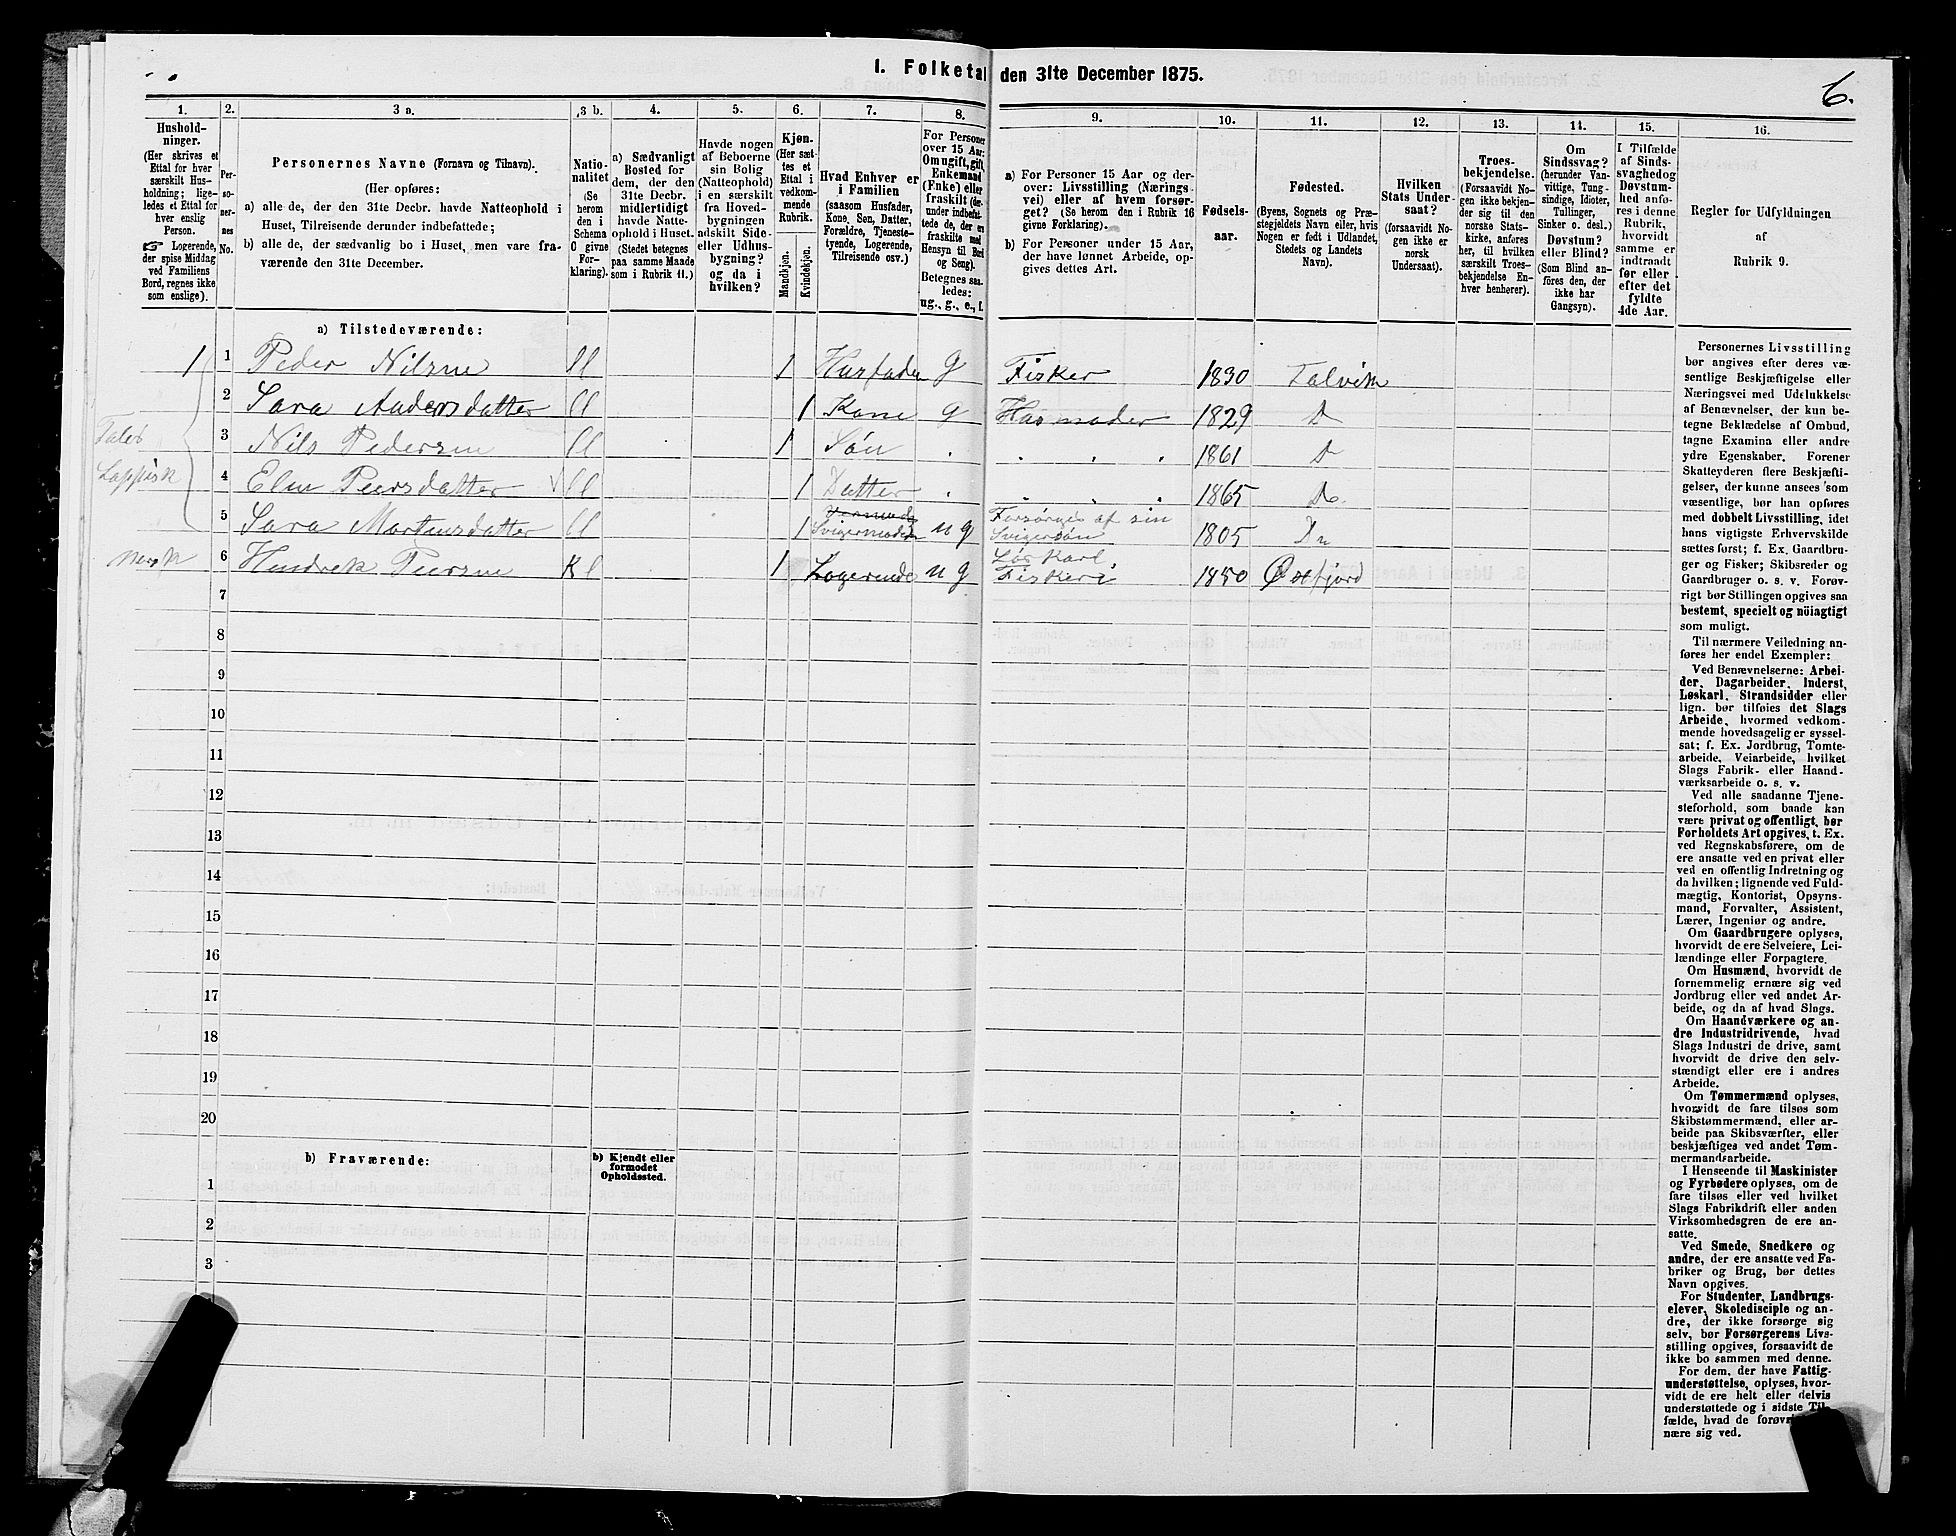 I. Folketal den 31te December 1875.
6.
1.
Hushold-
ninger.
(Her skrives et
Ettal for hver
særskilt Hus-
holdning; lige-
ledes et Ettal for
hver enslig
Person.
☞ Logerende,
der spise Middag
ved Familiens
Bord, regnes ikke
som enslige).
2.
Per-
so-
ner-
nes
No.
3 a.
Personernes Navne (Fornavn og Tilnavn).
(Her opføres:
a) alle de, der den 31te Decbr. havde Natteophold i
Huset, Tilreisende derunder indbefattede;
b) alle de, der sædvanlig bo i Huset, men vare fra-
værende den 31te December.
3 b.
Natio-
nalitet
(Se
herom
den i
Schema
C givne
For-
klaring).
4.
a) Sædvanligt
Bosted for
dem, der den
31te Decbr.
midlertidigt
havde Natte-
ophold i Huset.
(Stedet betegnes
paa samme Maade
som i Rubrik 11.)
5.
Havde nogen
af Beboerne
sin Bolig
(Natteophold)
i en særskilt
fra Hoved-
bygningen
adskilt Side-
eller Udhus-
bygning?
og da i
hvilken?
6.
Kjøn.
(Her sæt-
tes et
Ettal i
vedkom-
mende
Rubrik.
Mandkjøn.
Kvindekjøn.
7.
Hvad Enhver er
i Familien
(saasom Husfader,
Kone, Søn, Datter,
Forældre, Tjeneste-
tyende, Logerende,
Tilreisende osv.)
8.
For Personer
over 15 Aar:
Om ugift, gift,
Enkemand
(Enke) eller
fraskilt
Betegnes saa-
ledes:
ug., g., e., f.
9.
a) For Personer 15 Aar og der-
over: Livsstilling (Nærings-
vei) eller af hvem forsør-
get? (Se herom den i Rubrik 16
givne Forklaring).
b) For Personer under 15 Aar,
der have lønnet Arbeide, op-
gives dettes Art.
10.
Fødsels-
aar.
11.
Fødested.
(Byens, Sognets og Præ-
stegjeldets Navn eller, hvis
Nogen er født i Udlandet,
Stedets og Landets
Navn).
12.
Hvilken
Stats Under-
saat?
(forsaavidt No-
gen ikke er
norsk
Undersaat).
13.
Troes-
bekjendelse.
(Forsaavidt No-
gen ikke bekjen-
der sig til den
norske Stats-
kirke, anføres
her, til hvilken
særskilt Troes-
bekjendelse En-
hver henhører).
14.
Om
Sindssvag?
(herunder Van-
vittige, Tung-
sindige, Idioter,
Tullinger,
Sinker o. desl.)
Døvstum?
eller Blind?
(Som Blind an-
føres den, der
ikke har
Gangsyn).
15.
I Tilfælde
af Sinds-
svaghed og
Døvstum-
hed anfø-
res i denne
Rubrik,
hvorvidt
samme er
indtraadt
før eller
efter det
fyldte
4de Aar.
16.
Regler for Udfyldningen
af
Rubrik 9.
a) Tilstedeværende:
1 1 Peder Nilsen 1 Husfader g Fisker 1830 Talvik
2 Sara Andersdatter 1 Kone g Husmoder 1829 D
3 Nils Pedersen 1 Søn 1861 D
4 Elen Peersdatter 1 Datter 1865 D
5 Sara Mortensdatter 1 Svigermoder ug Forsørges af sin Svigersøn 1805 Do
6 Hendrek Peersen 1 Logerende ug Løs Karl Fiskeri 1850
Taler
Lappisk
norsk
7
8
9
10
11
12
13
14
15
16
17
18
19
20
b) Fraværende:
b) Kjendt eller
formodet
Opholdssted.
1
2
3
Personernes Livsstilling
bør angives efter deres væ-
sentlige Beskjæftigelse eller
Næringsvei med Udelukkelse
af Benævnelser, der kun be-
tegne Beklædelse af Ombud,
tagne Examina eller andre
ydre Egenskaber. Forener
Skatteyderen flere Beskjæfti-
gelser, der kunne ansees som
væsentlige, bør han opføres
med dobbelt Livsstilling, idet
hans vigtigste Erhvervskilde
sættes først; f. Ex. Gaardbru-
ger og Fisker; Skibsreder og
Gaardbruger o. s. v. Forøv-
rigt bør Stillingen opgives saa
bestemt, specielt og nöiagtigt
som muligt.
Til nærmere Veiledning an-
føres her endel Exempler:
Ved Benævnelserne: Arbei-
der, Dagarbeider, Inderst,
Løskarl, Strandsidder eller
lign. bør tilføies det Slags
Arbeide, hvormed vedkom-
mende hovedsagelig er syssel-
sat; f. Ex. Jordbrug, Tomte-
arbeide, Veiarbeide, hvilket
Slags Fabrik- eller Haand-
værksarbeide o. s. v.
Ved alle saadanne Tjene-
steforhold, som baade kan
være privat og offentligt, bør
Forholdets Art opgives, t. Ex.
ved Regnskabsførere, om de
ere ansatte ved en privat eller
ved en offentlig Indretning og
da hvilken; lignende ved Fuld-
mægtig, Kontorist, Opsyns-
mand, Forvalter, Assistent,
Lærer, Ingeniør og andre.
Om Gaardbrugere oplyses,
hvorvidt de ere Selveiere, Lei-
lændinge eller Forpagtere.
Om Husmænd, hvorvidt de
fornemmelig ernære sig ved
Jordbrug eller ved andet Ar-
beide, og da af hvad Slags.
Om Haandværkere og an-
dre Industridrivende, hvad
Slags Industri de drive, samt
hvorvidt de drive den selv-
stændigt eller ere i andres
Arbeide.
Om Tømmermænd oplyses,
hvorvidt de fare tilsøs som
Skibstømmermænd, eller ar-
beide paa Skibsværfter, eller
beskjæftiges ved andet Tøm-
mermandsarbeide.
I Henseende til Maskinister
og Fyrbødere oplyses, om de
fare tilsøs eller ved hvilket
Slags Fabrikdrift eller anden
Virksomhedsgren de ere an-
satte.
Ved Smede, Snedkere og
andre, der ere ansatte ved Fa-
briker og Brug, bør dettes
Navn opgives.
For Studenter, Landbrugs-
elever, Skoledisciple og an-
dre, der ikke forsørge sig
selv, bør Forsørgerens Livs-
stilling opgives, forsaavidt de
ikke bo sammen med denne.
For dem, der have Fattig-
understøttelse, oplyses, hvor-
vidt de ere helt eller delvis
understøttede og i sidste Til-
fælde, hvad de forøvrigt er-
nære sig ved.